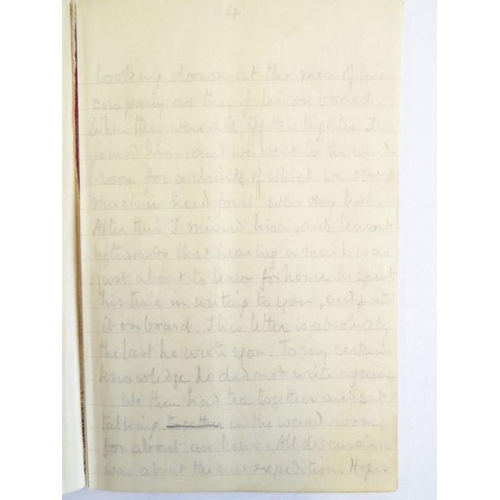 4
looking down at the men of his
company as they filed on board.
When they were all off the lighter I re
joined him, and we went to the ward
room for a drink of which we stood
much in need for it was very hot.
After this I missed him, and learnt
afterwards that hearing a mail was
just about to leave for home he spent
his time in writing to you, and
it on board. This letter is absolutely
the last he wrote you. To my certain
knowledge he did not write again.
We then had tea together and sat
talking together in the ward room
for about an hour. All discussion
was about the new expedition. Hopes